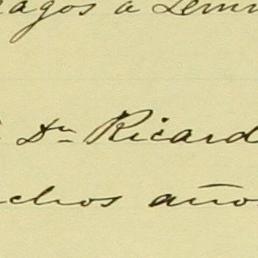 ragos á Lemu
Dn Ricard
chos año